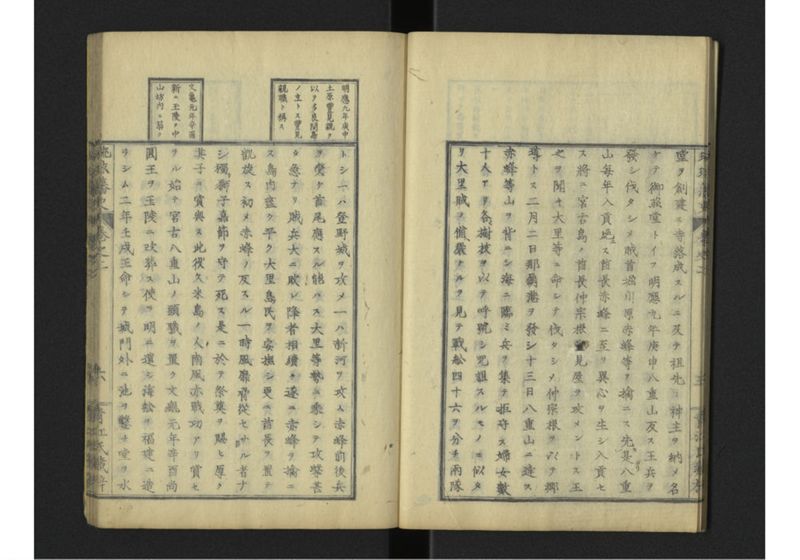 堂ヲ創建ス寺落成スルニ及テ祖先ノ神主ヲ納メ名
ケテ御照堂トイフ明應九年庚申八重山反ス王兵ヲ
發シ伐タシメ賊首堀川原赤峰等ヲ擒ニス先是八重
山每年入貢絶ス酋長赤峰ニ至リ異心ヲ生シ入貢セ
ス將ニ宮古島ノ酋長仲宗根豐見屋ヲ攻メントス王
之ヲ聞キ大里等ニ命シテ伐タシメ仲宗根ヲ以テ鄉
導トス二月二日那覇港ヲ發シ十三日八重山ニ達ス
赤峰等山ヲ背ニシ海ニ臨ミ兵ヲ集テ拒守ス婦女數
十人アリ各樹枝ヲ以テ呼號シ咒詛スルモノニ似タ
リ大里賊ヲ備嚴ナルヲ見テ戰船四十六ヲ分チ兩隊
明應九年庚申
土原豐見親ヲ
以テ多良間島
ノ主トス豐見
親職ト稱ス
トシ一ハ登野城ヲ攻メ一ハ新河ヲ攻ム赤峰前後兵
ヲ受ケ首尾應スル能ハス大里等勢ニ乘シテ攻擊甚
タ急ナリ賊兵大ニ敗レ降者相續ク遂ニ赤峰ヲ擒ニ
ス島内盡ク平ク大里島民ヲ安撫シ更ニ酋長ヲ置テ
凱旋ス初メ赤峰ノ反スル一時風靡脅從セサル者ナ
シ獨獅子嘉節ヲ守テ死ス是ニ於テ祭奠ヲ賜ヒ厚ク
其子ニ賞與ス此役久米島ノ人南風赤職功アリ賞セ
ラル始テ宮古八重山ノ頭職ヲ置ク文龜元年辛酉尚
圓王ヲ王陵ニ改葬ス使ヲ明ニ遣シ海船ヲ福建ニ造
リシム二年壬戌王命シテ城門外ニ池ヲ鑿チ堂ヲ水
文龜元年辛酉
新ニ王陵ヲ中
山坊内ニ築ク
琉球藩史 卷之二
六